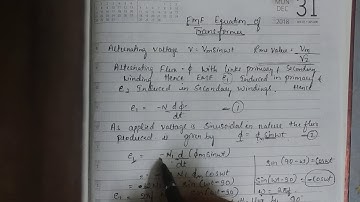 EMF Equation of
Transformer
MON
DEC
31
2018
Alternating voltage V = Vm sinωt
Rms value = Vm/√2
Alternating Flux - ϕ with links primary & Secondary
Winding Hence EMF E1 Induced in primary &
e2 Induced in Secondary Windings, Hence
e1 = -N dϕ/dt — ①
As applied voltage is Sinusoidal in nature the flux
produced is given by ϕ = ϕm sinωt — ②
e1 = -N1 d/dt (ϕm sinωt)
sin(90-ωt) = cosωt
sin(ωt-90) = -cosωt